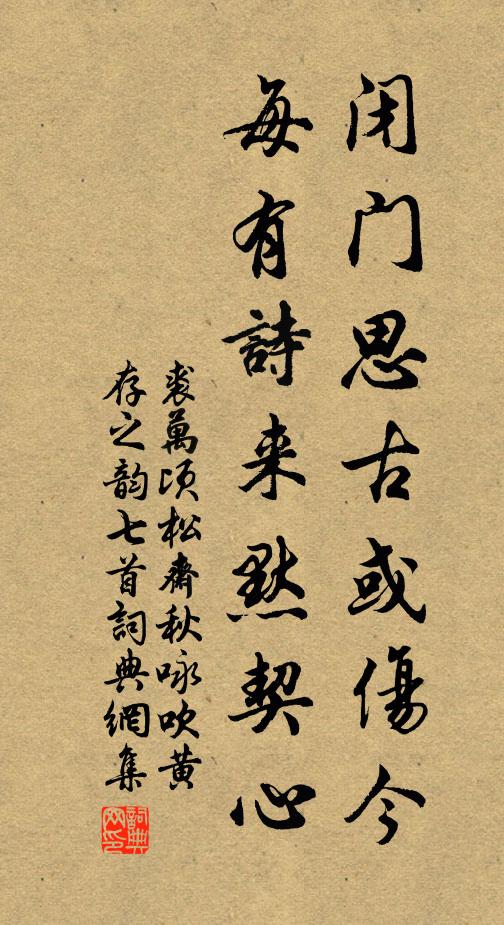 闭门思古或傷今
每有詩来默契心
裘萬頃松齋秋咏吹黄
存之韵七首詞典網集
詞典网印